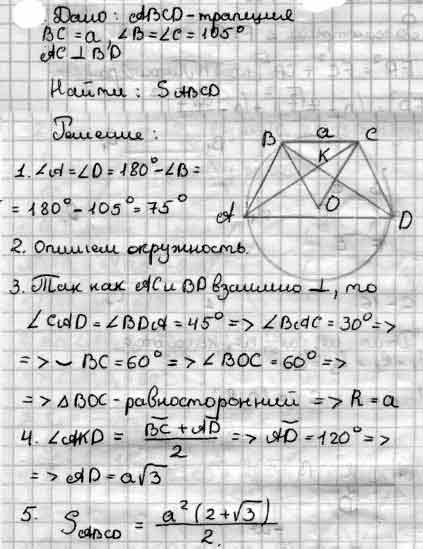 Дано: ABCD-трапеция
BC = a, ∠B=∠C = 105°
AC ⊥ BD
Найти: S ABCD
Решение:
1. ∠A = ∠D = 180° - ∠B =
= 180° - 105° = 75°
B a C
K
O
A D
2. Опишем окружность.
3. Так как AC и BD взаимно ⊥, то
∠CAD = ∠BDA = 45° => ∠BAC = 30° =>
=> ⌣ BC = 60° => ∠BOC = 60° =>
=> △BOC - равносторонний => R = a
4. ∠AKD = (B͡C + A͡D) / 2 => A͡D = 120° =>
=> AD = a√3
5. S ABCD = a²(2+√3) / 2.